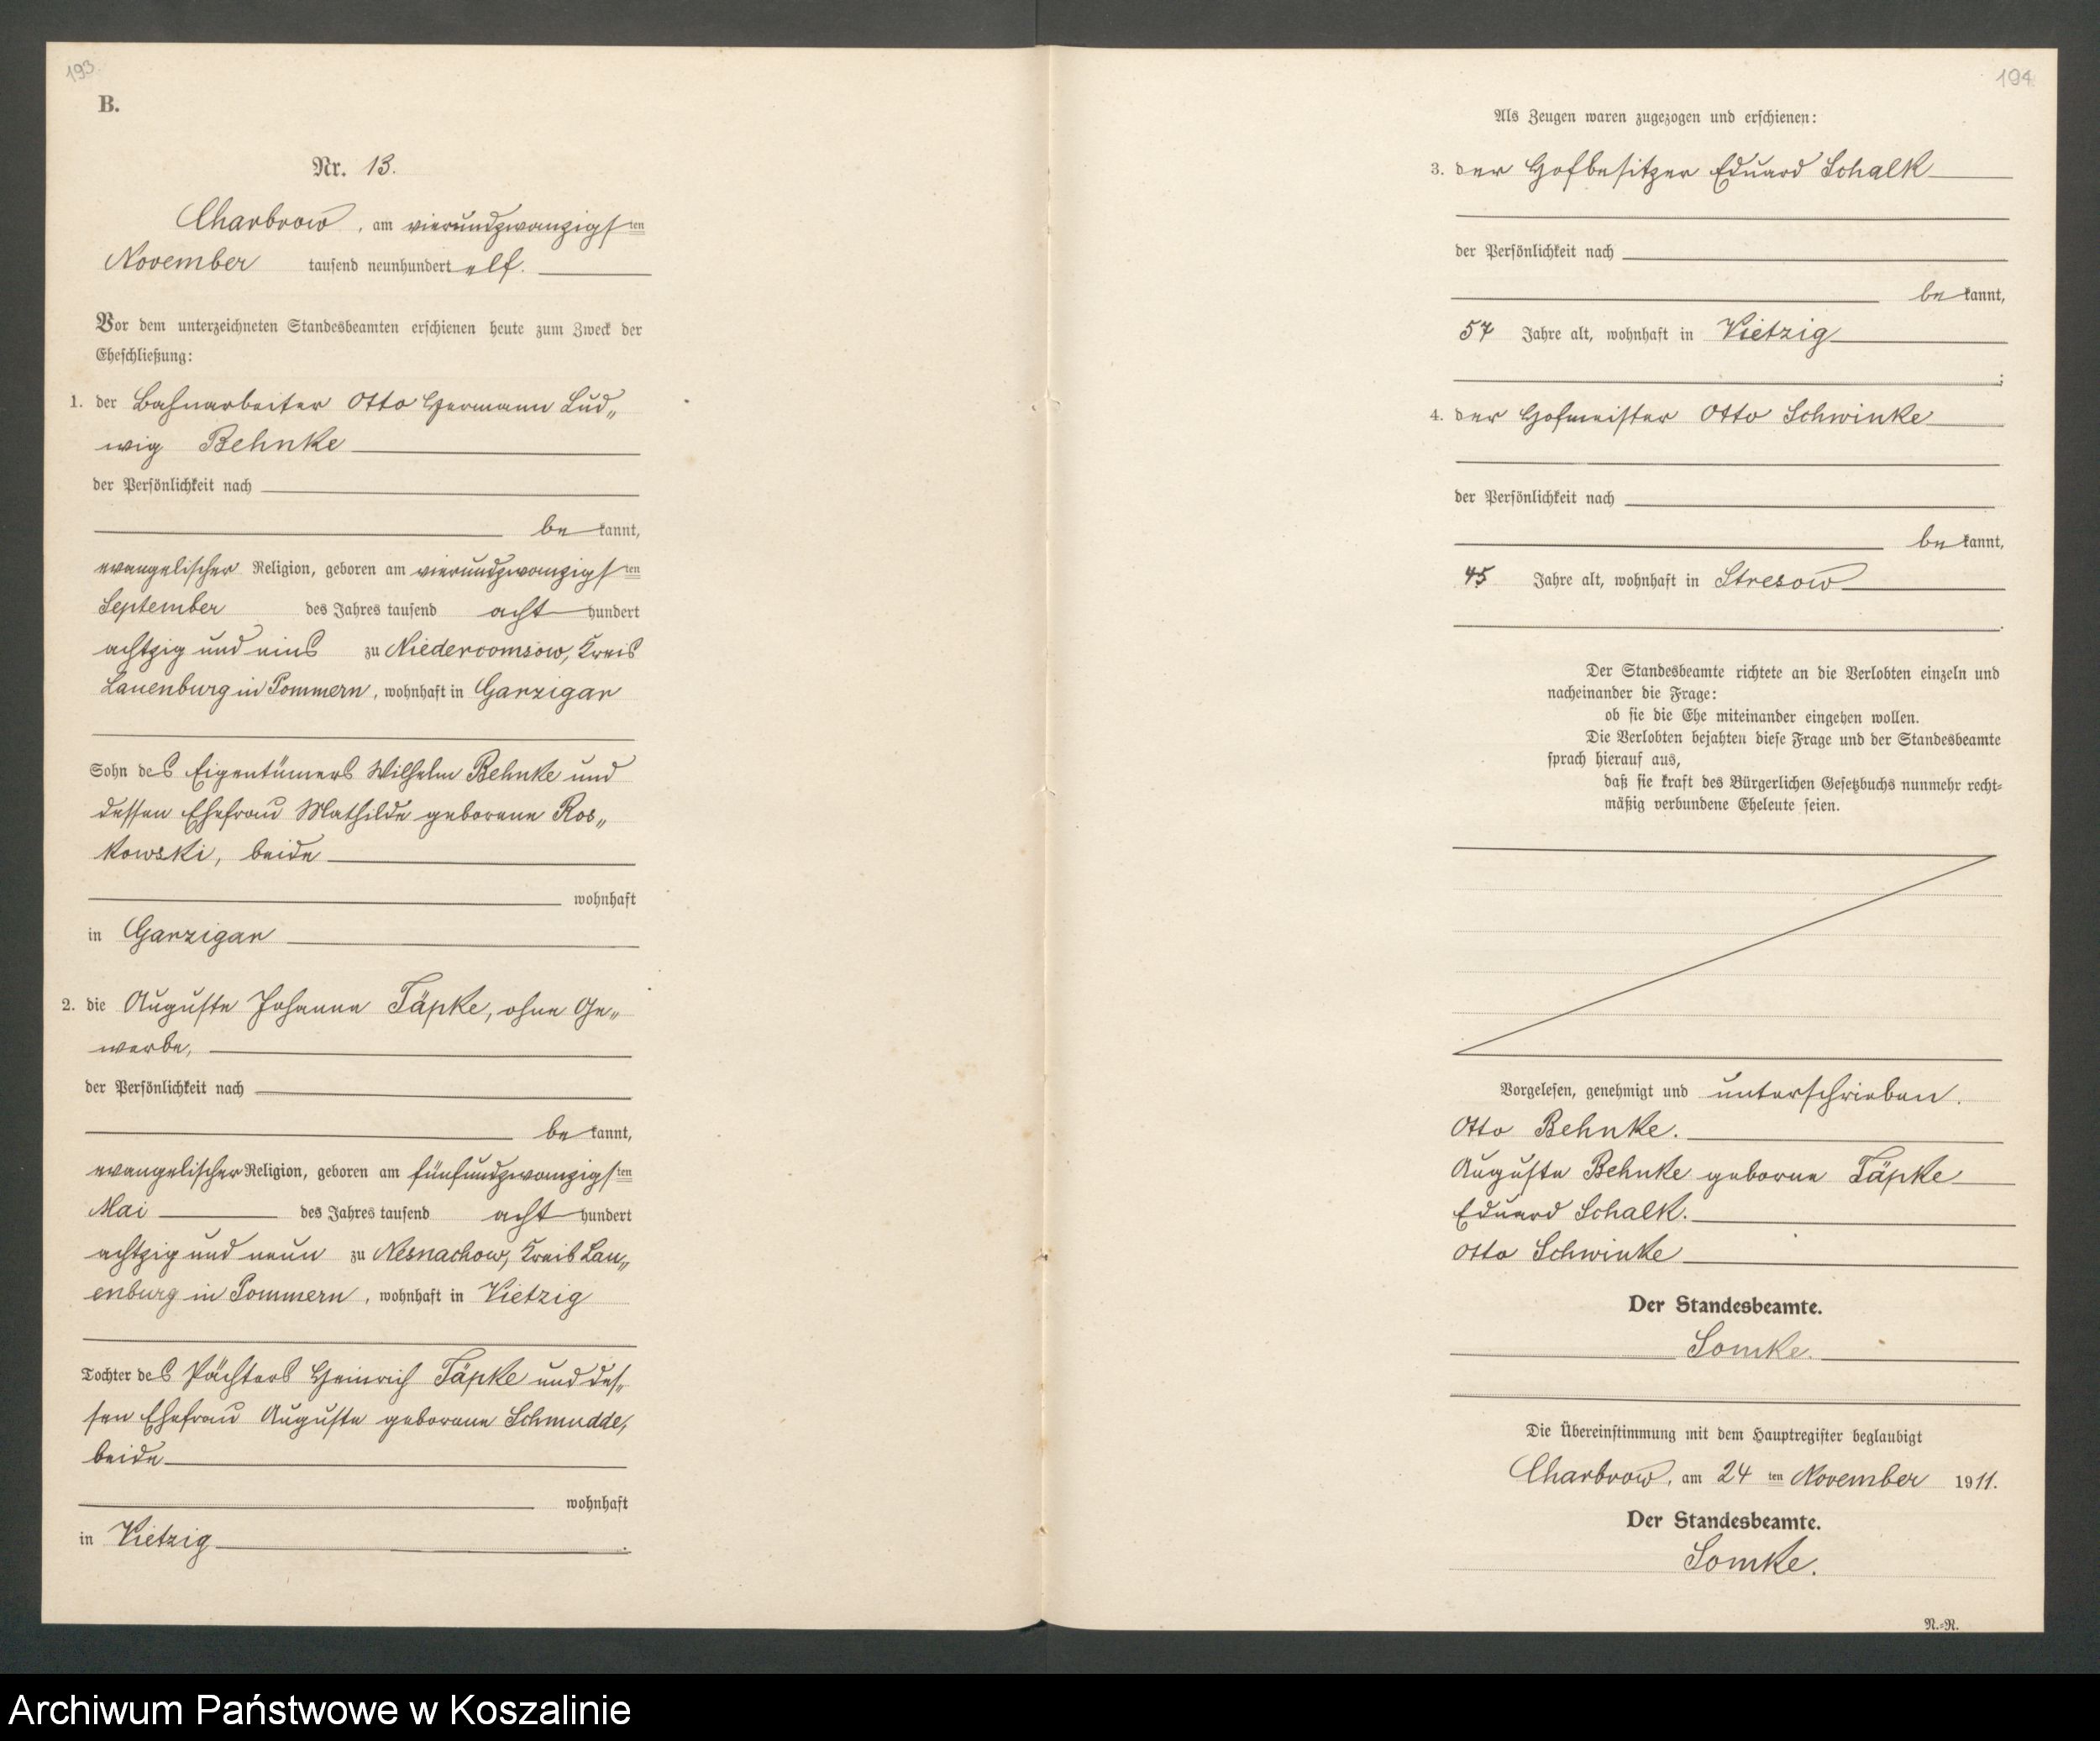 193.
B.
Nr. 13.
Charbrow, am vierundzwanzigsten
November tausend neunhundert elf.
Vor dem unterzeichneten Standesbeamten erschienen heute zum Zweck der
Eheschließung:
1. der Bahnarbeiter Otto Hermann Lud„
wig Behnke
der Persönlichkeit nach
be kannt,
evangelischer Religion, geboren am vierundzwanzigsten
September des Jahres tausend acht hundert
achtzig und eins zu Niedercomsow, Kreis
Lauenburg in Pommern, wohnhaft in Garzigar
Sohn des Eigentümers Wilhelm Behnke und
dessen Ehefrau Mathilde geborene Ros„
kowski, beide
wohnhaft
in Garzigar
2. die Auguste Johanna Täpke, ohne Ge„
werbe,
der Persönlichkeit nach
be kannt,
evangelischer Religion, geboren am fünfundzwanzigsten
Mai des Jahres tausend acht hundert
achtzig und neun zu Nesnachow, Kreis Lau„
enburg in Pommern, wohnhaft in Vietzig
Tochter des Pächters Heinrich Täpke und des„
sen Ehefrau Auguste geborene Schmudde,
beide
wohnhaft
in Vietzig.
194
Als Zeugen waren zugezogen und erschienen:
3. der Hofbesitzer Eduard Schalk
der Persönlichkeit nach
be kannt,
57 Jahre alt, wohnhaft in Vietzig
;
4. der Hofmeister Otto Schwinke
der Persönlichkeit nach
be kannt,
45 Jahre alt, wohnhaft in Stresow
.
Der Standesbeamte richtete an die Verlobten einzeln und
nacheinander die Frage:
ob sie die Ehe miteinander eingehen wollen.
Die Verlobten bejahten diese Frage und der Standesbeamte
sprach hierauf aus,
daß sie kraft des Bürgerlichen Gesetzbuchs nunmehr recht-
mäßig verbundene Eheleute seien.
Vorgelesen, genehmigt und unterschrieben.
Otto Behnke.
Auguste Behnke geborne Täpke
Eduard Schalk.
Otto Schwinke
Der Standesbeamte.
Somke.
Die Übereinstimmung mit dem Hauptregister beglaubigt
Charbrow, am 24 ten November 1911.
Der Standesbeamte.
Somke.
N.-R.
Archiwum Państwowe w Koszalinie